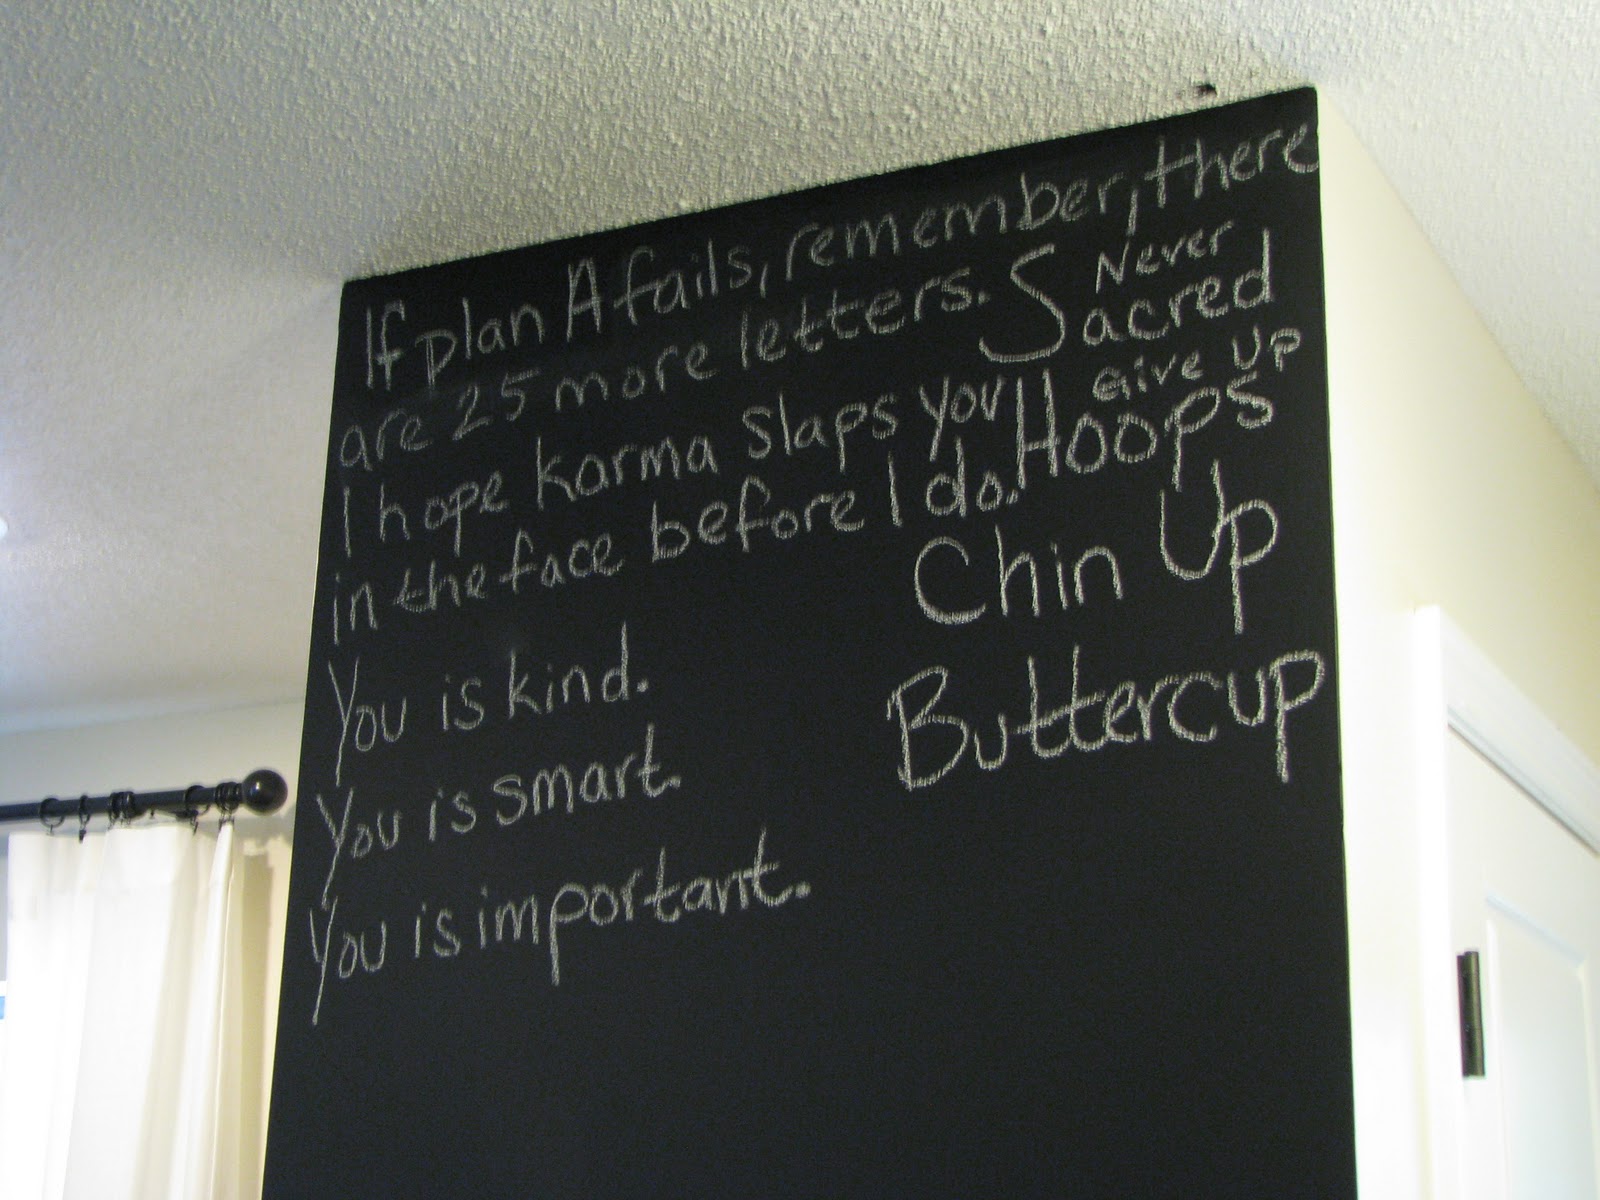 If plan A fails, remember, there
are 25 more letters.
I hope karma slaps you
in the face before I do.
You is kind.
You is smart.
You is important.
Never
Sacred
Give Up
Hoops
Chin Up
Buttercup